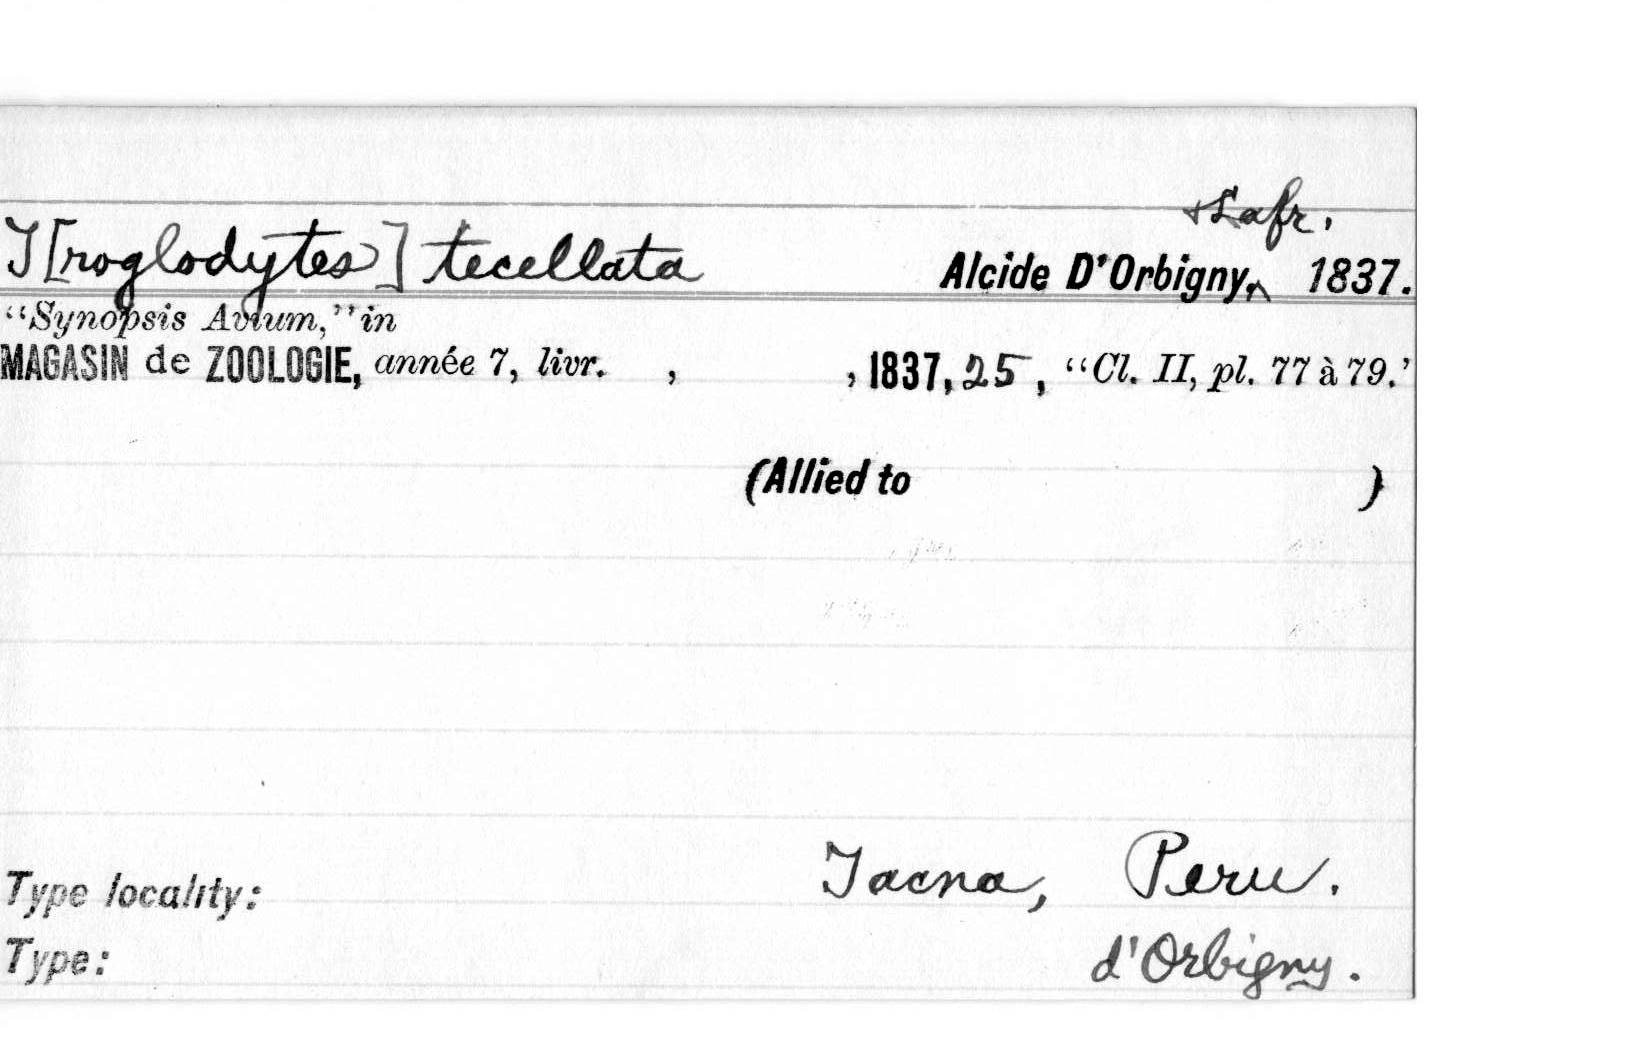 + Lafr.
T[roglodytes] tecellata Alcide D'Orbigny, ^ 1837.
"Synopsis Avium," in
MAGASIN de ZOOLOGIE, année 7, livr. , , 1837, 25, "Cl. II, pl. 77 à 79.'
(Allied to )
Type locality: Tacna, Peru.
Type: d'Orbigny.